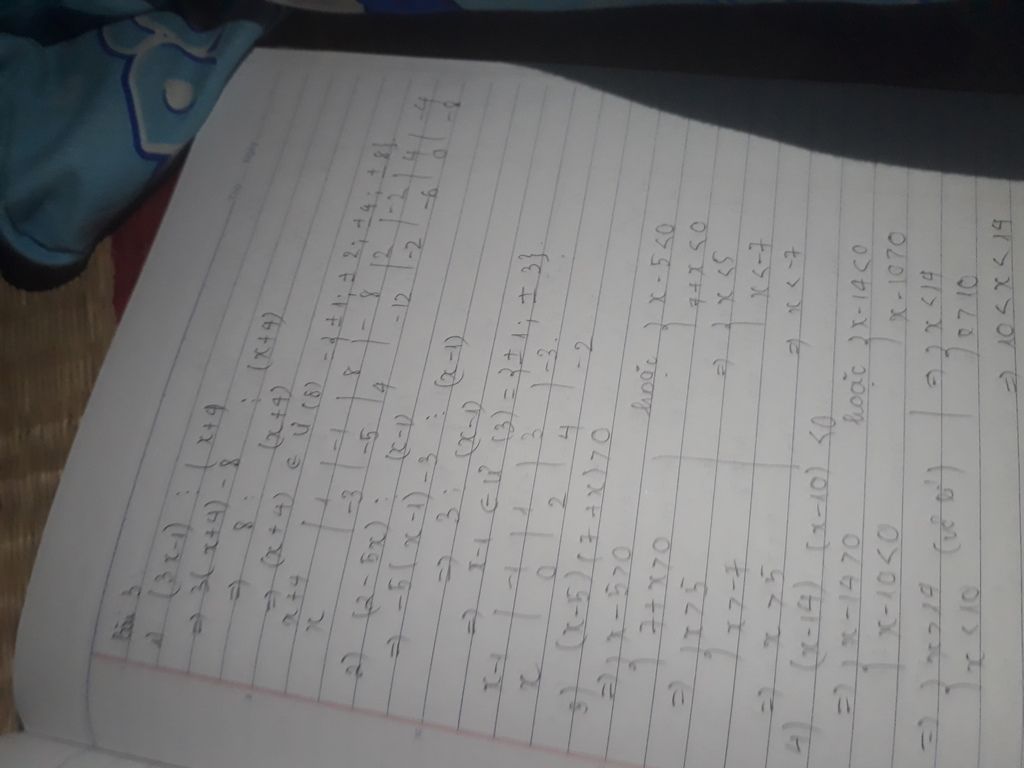 Bài 3
1) (3x-1) ⋮ (x+4
=> 3(x+4) - 8 ⋮ (x+4)
=> 8 ⋮ (x+4)
=> (x+4) ∈ Ư(8) = {±1; ±2; ±4; ±8}
x+4 | 1 | -1 | 8 | -8 | 2 | -2 | 4 | -4
x | -3 | -5 | 4 | -12 | -2 | -6 | 0 | -8
2) (2-5x) ⋮ (x-1)
=> -5(x-1) - 3 ⋮ (x-1)
=> 3 ⋮ (x-1)
=> x-1 ∈ Ư (3) = {±1; ±3}
x-1 | -1 | 1 | 3 | -3
x | 0 | 2 | 4 | -2
3) (x-5)(7+x)>0
=> } x-5>0 hoặc } x-5<0
} 7+x>0 } 7+x<0
=> } x>5 => } x<5
} x>-7 } x<-7
=> x>5 => x<-7
4) (x-14) (x-10) <0
=> } x-14>0 hoặc } x-14<0
} x-10<0 } x-10>0
=> } x>14 (vô lí) | => } x<14
} x<10 } x>10
=> 10<x<14